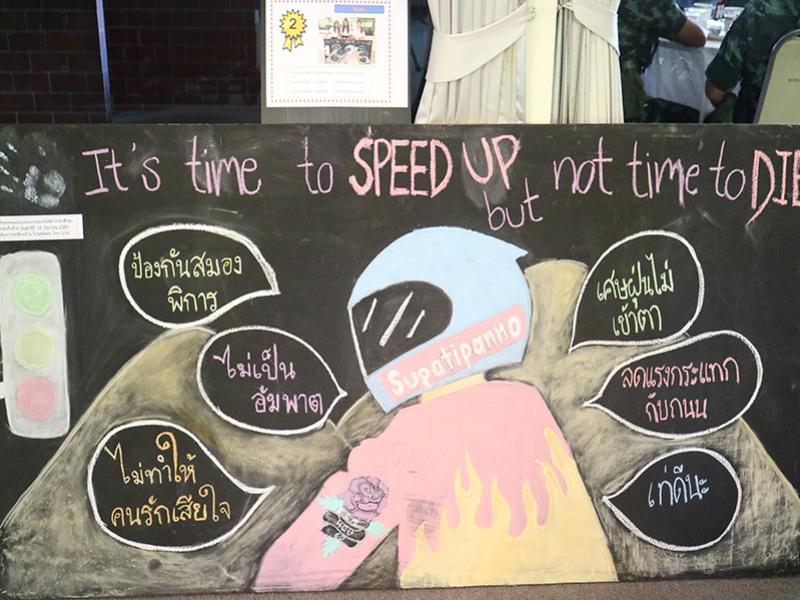 2
It's time to SPEED UP but not time to DIE
ป้องกันสมอง
พิการ
ไม่เป็น
อัมพาต
ไม่ทำให้
คนรักเสียใจ
Supatipanno
เศษฝุ่นไม่
เข้าตา
ลดแรงกระแทก
กับถนน
เท่ดีนะ